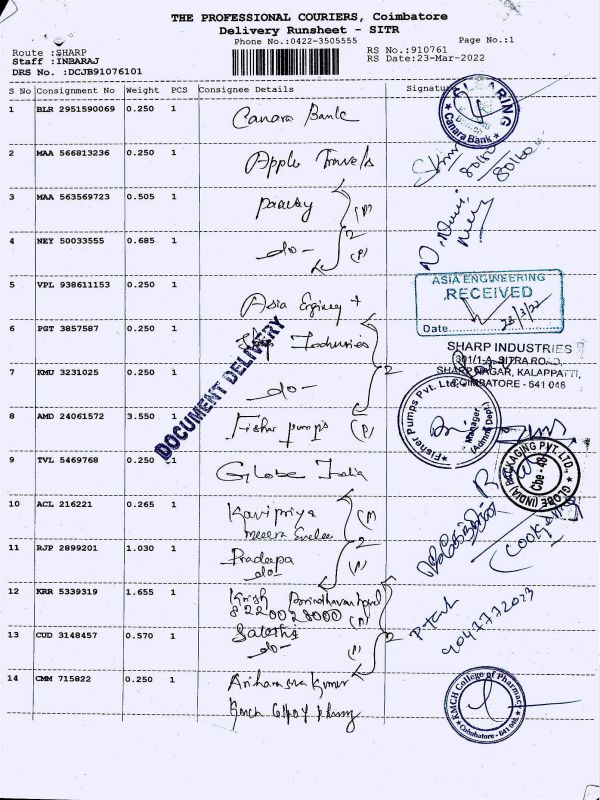 THE PROFESSIONAL COURIERS, Coimbatore
Delivery Runsheet - SITR
Phone No.:0422-3505555
Page No.:1
Route :SHARP
Staff :INBARAJ
DRS No. :DCJB91076101
RS No.:910761
RS Date:23-Mar-2022
S No Consignment No Weight PCS Consignee Details Signature
1 BLR 2951590069 0.250 1 Canara Bank
SHARING
★ Canara Bank ★
2 MAA 566813236 0.250 1 Apple Travels
80160
80160
3 MAA 563569723 0.505 1 (P)
2
4 NEY 50033555 0.685 1 -do- (P)
5 VPL 938611153 0.250 1 Asia
ASIA ENGINEERING
RECEIVED
Date 23/3/22
6 PGT 3857587 0.250 1 Industries
DOCUMENT DELIVERY
SHARP INDUSTRIES
301/1-A, SITRA ROAD,
SHARP NAGAR, KALAPPATTI,
COIMBATORE - 641 048
7 KMU 3231025 0.250 1 -do- 2
8 AMD 24061572 3.550 1 Fisher pumps (P)
Fisher Pumps Pvt. Ltd.
Manager
(Admn Dept)
9 TVL 5469768 0.250 1 Globe India
GLOBE (INDIA) PACKAGING PVT.LTD.,
Cbe - 48
10 ACL 216221 0.265 1 Kavipriya
meera (P)
2
11 RJP 2899201 1.030 1 Pradeepa
-do- (P)
12 KRR 5339319 1.655 1 Krish
8220028000 (P)
9047772023
13 CUD 3148457 0.570 1
-do- (P) 2
14 CMM 715822 0.250 1 Kumar
Kmch
KMCH College of Pharmacy
Coimbatore - 641 048.